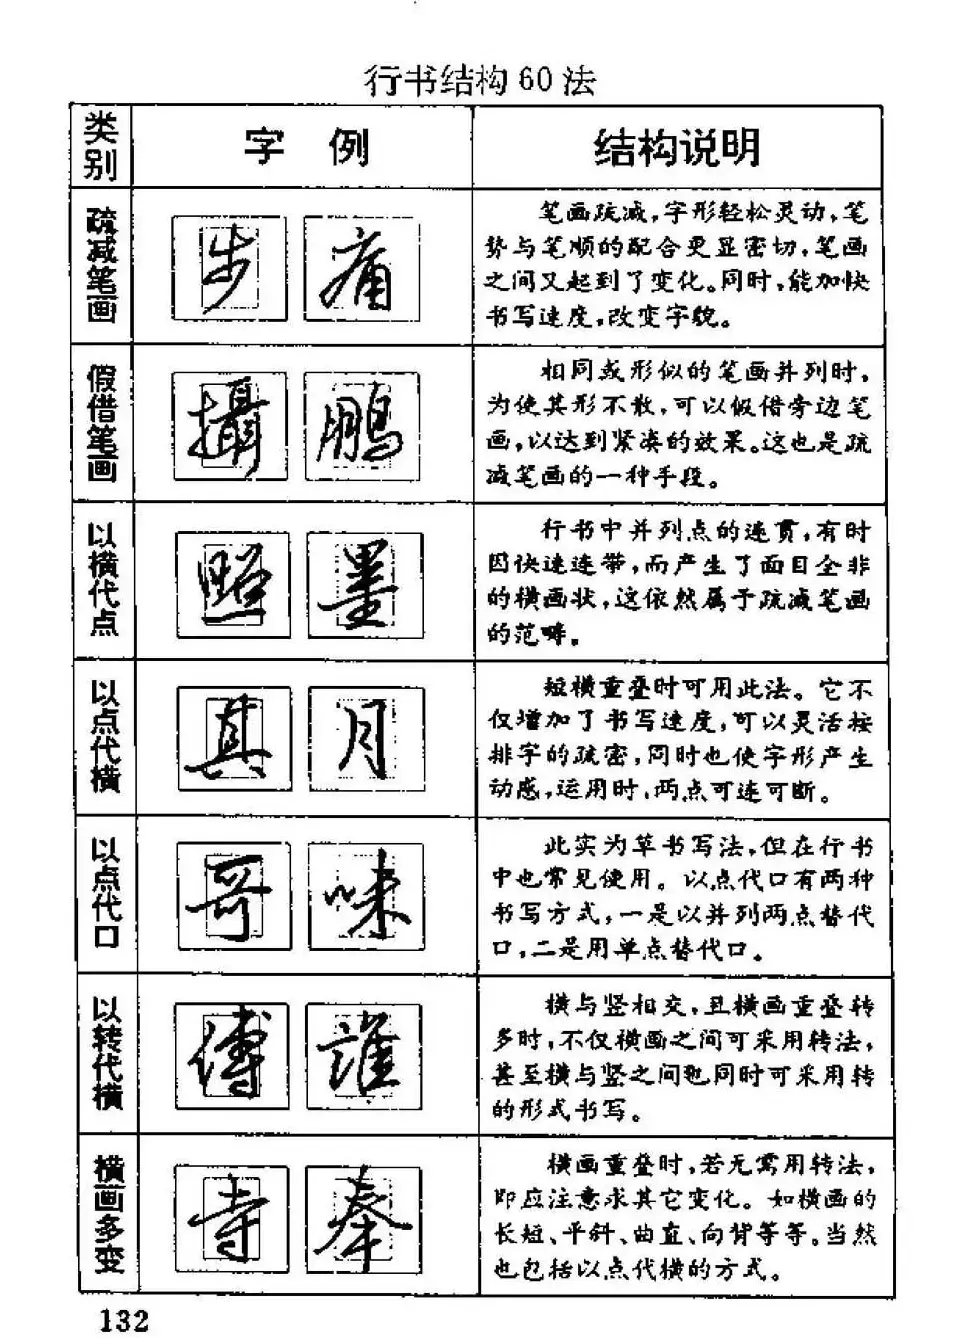 行书结构60法
类别
字 例
结构说明
疏减笔画
步 痛
笔画疏减,字形轻松灵动,笔
势与笔顺的配合更显密切,笔画
之间又起到了变化。同时,能加快
书写速度,改变字貌。
假借笔画
攝 鹏
相同或形似的笔画并列时,
为使其形不散,可以假借旁边笔
画,以达到紧凑的效果。这也是疏
减笔画的一种手段。
以横代点
照 墨
行书中并列点的连贯,有时
因快速连带,而产生了面目全非
的横画状,这依然属于疏减笔画
的范畴。
以点代横
真 月
短横重叠时可用此法。它不
仅增加了书写速度,可以灵活按
排字的疏密,同时也使字形产生
动感,运用时,两点可连可断。
以点代口
哥 味
此实为草书写法,但在行书
中也常见使用。以点代口有两种
书写方式,一是以并列两点替代
口,二是用单点替代口。
以转代横
傅 谁
横与竖相交,且横画重叠转
多时,不仅横画之间可采用转法,
甚至横与竖之间也同时可采用转
的形式书写。
横画多变
寺 奉
横画重叠时,若无需用转法,
即应注意求其它变化。如横画的
长短、平斜、曲直、向背等等。当然
也包括以点代横的方式。
132